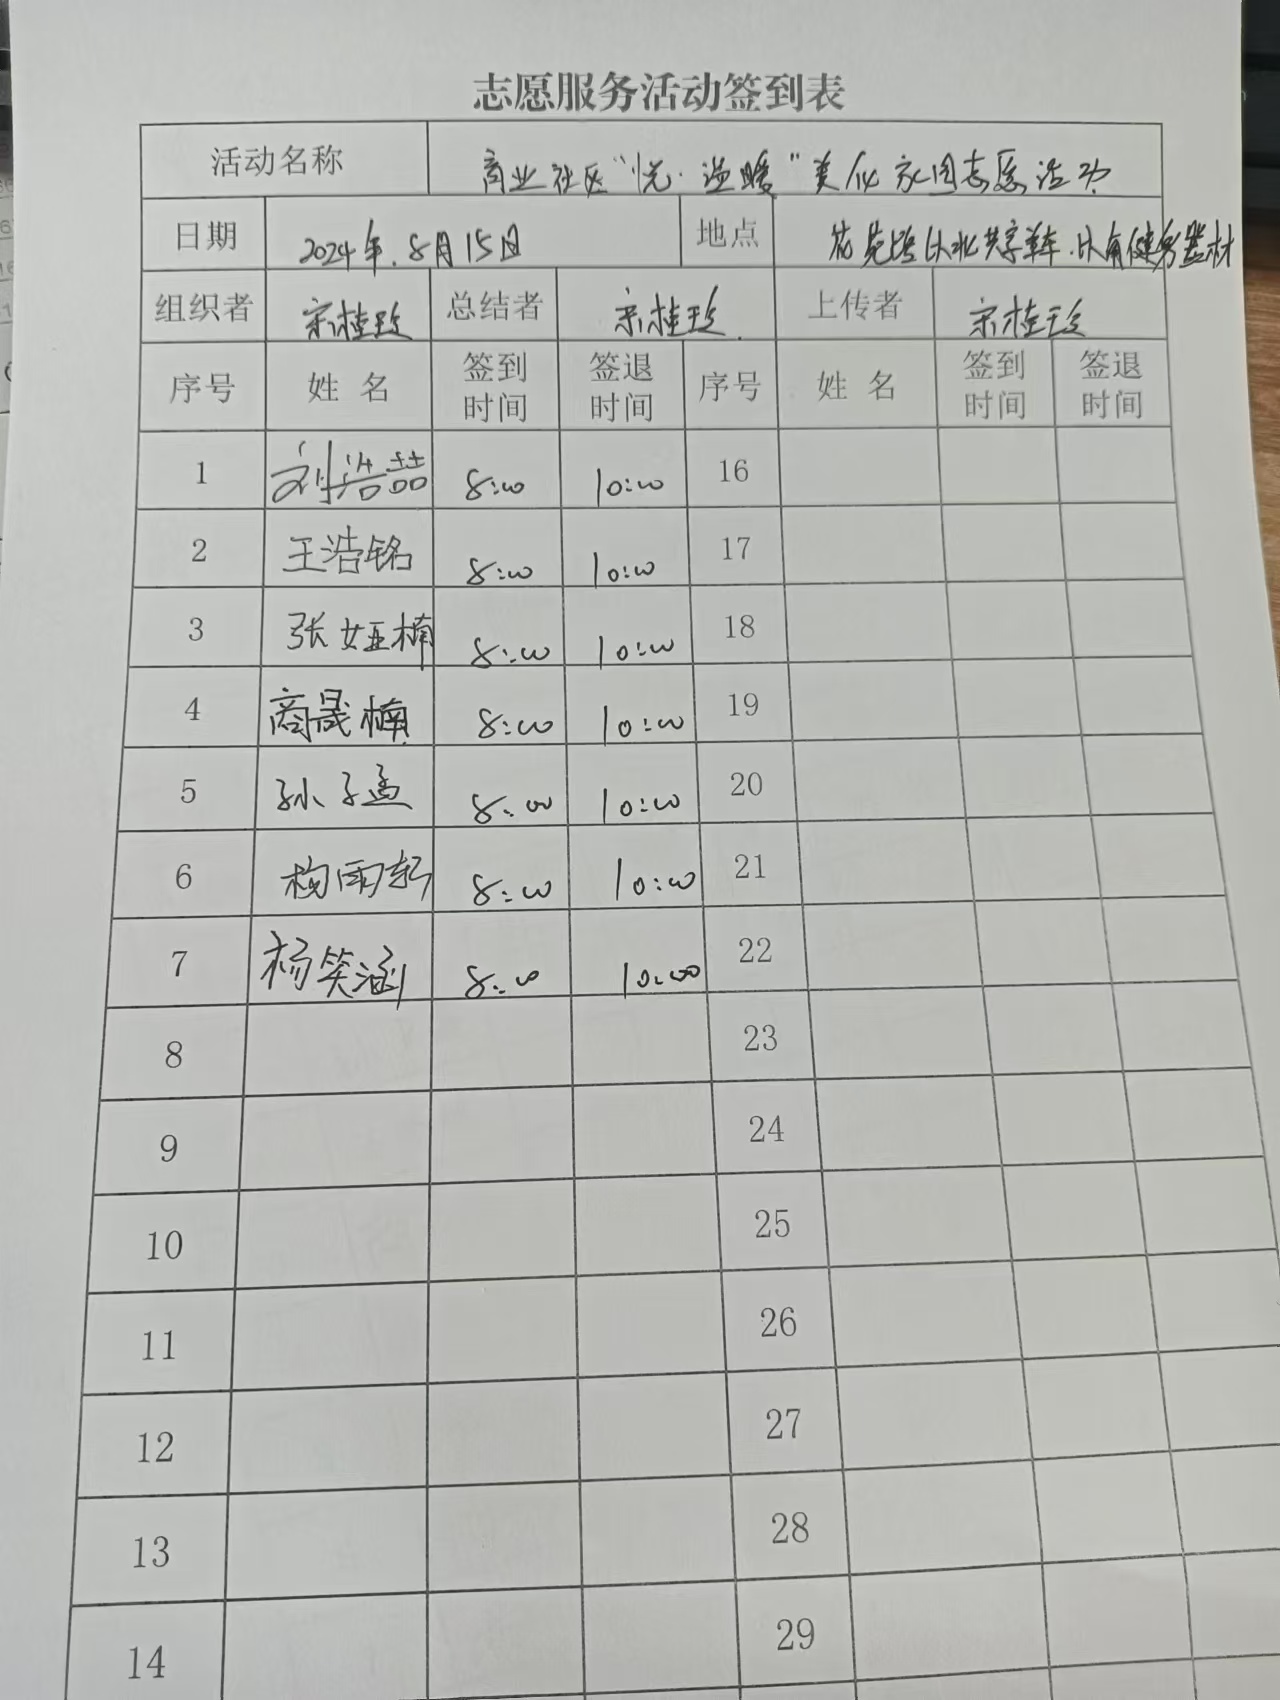 志愿服务活动签到表
活动名称 商业社区“悦·溢暖”美化家园志愿活动
日期 2024年.8月15日 地点 花苑路以北共享单车.以南健身器材
组织者 宋桂珍 总结者 宋桂珍 上传者 宋桂珍
序号 姓 名 签到时间 签退时间 序号 姓 名 签到时间 签退时间
1 刘浩喆 8:00 10:00 16
2 王浩铭 8:00 10:00 17
3 张娅楠 8:00 10:00 18
4 商晟楠 8:00 10:00 19
5 孙子孟 8:00 10:00 20
6 梅雨轩 8:00 10:00 21
7 杨笑涵 8:00 10:00 22
8 23
9 24
10 25
11 26
12 27
13 28
14 29